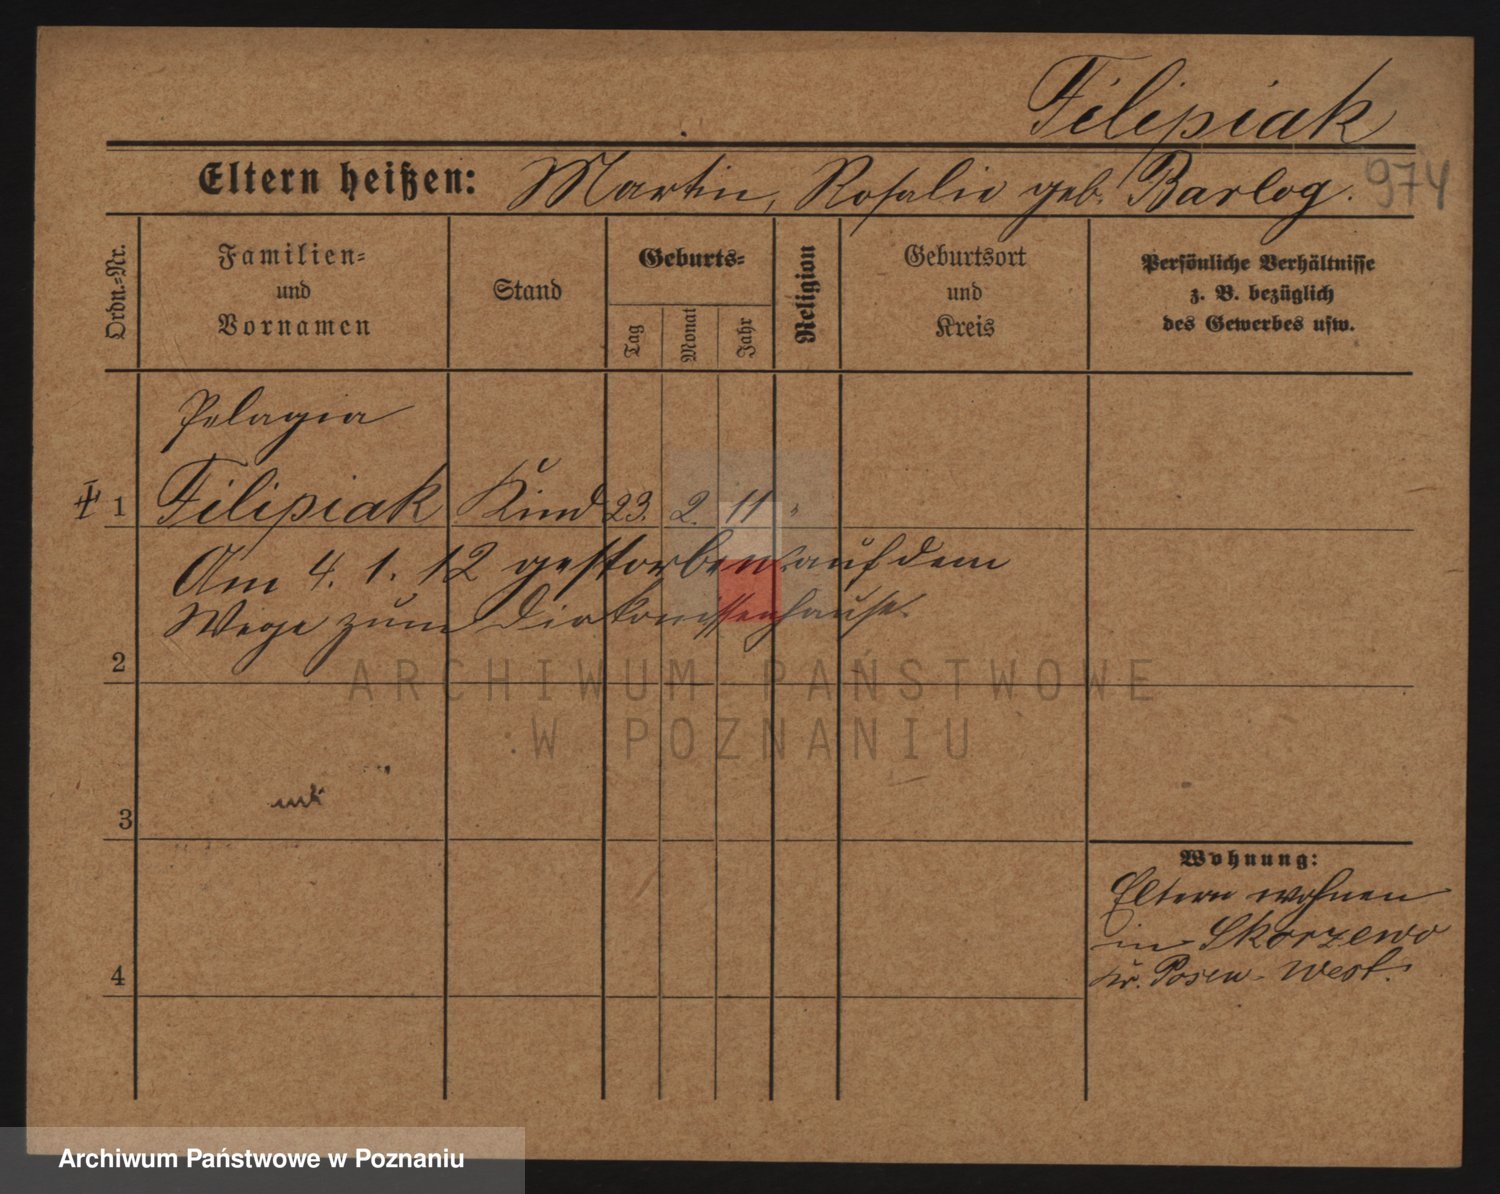 Filipiak
Eltern heißen: Martin, Rosalie geb. Barlog.
974
Ordn.-Nr.
Familien-
und
Vornamen
Stand
Geburts-
Tag
Monat
Jahr
Religion
Geburtsort
und
Kreis
Persönliche Verhältnisse
z. B. bezüglich
des Gewerbes usw.
Pelagia
1 Filipiak Kind 23. 2. 11
Am 4. 1. 12 gestorben auf dem
Wege zum Diakonissenhause.
2
3
4
Wohnung:
Eltern wohnen
in Skorzewo
Kr. Posen-West.
ARCHIWUM PAŃSTWOWE
W POZNANIU
Archiwum Państwowe w Poznaniu